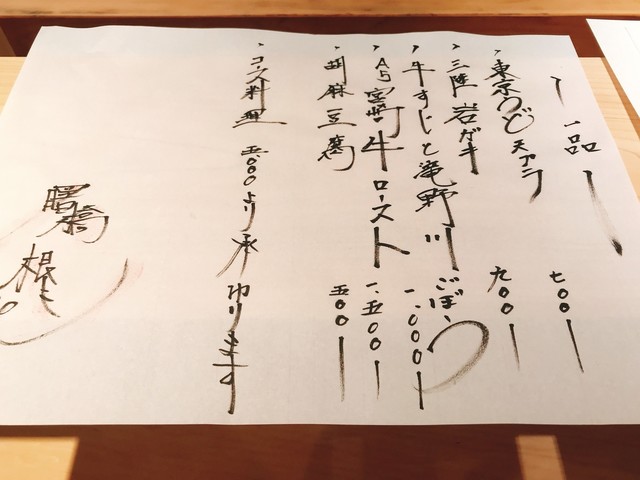 一品
、東京うど天プラ 七〇〇ー
、三陸岩ガキ 九〇〇ー
、牛すじと滝野川ごぼう 一、〇〇〇ー
、A5宮崎牛ロースト 一、五〇〇ー
、胡麻豆腐 五〇〇ー
、コース料理 五〇〇〇より承ります
曙橋